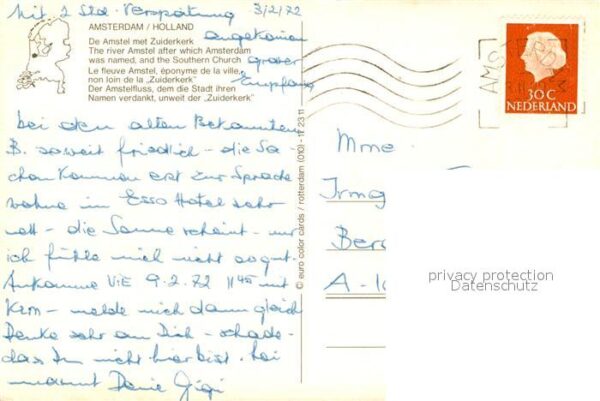 Mit 2 Std. Verspätung 3/2/72
AMSTERDAM / HOLLAND
angekommen
De Amstel met Zuiderkerk
The river Amstel after which Amsterdam
was named, and the Southern Church
grosser
Le fleuve Amstel, éponyme de la ville,
non loin de la „Zuiderkerk"
Empfang
Der Amstelfluss, dem die Stadt ihren
Namen verdankt, unweit der „Zuiderkerk"
bei den alten Bekannten
B. soweit friedlich - die Sa-
chen kommen erst zur Sprache
wohne im Esso Hotel sehr
nett - die Sonne scheint - nur
ich fühle mich nicht so gut.
Ankomme VIE 9.2.72 11 45 mit
KLM - melde mich dann gleich
Denke sehr an Dich - schade
das Du nicht hier bist.
Deine Gigi
© euro color cards / rotterdam (010) - 17 23 11
AMS
30 C
NEDERLAND
Mme
Irmg
Ber
A - 1
privacy protection
Datenschutz